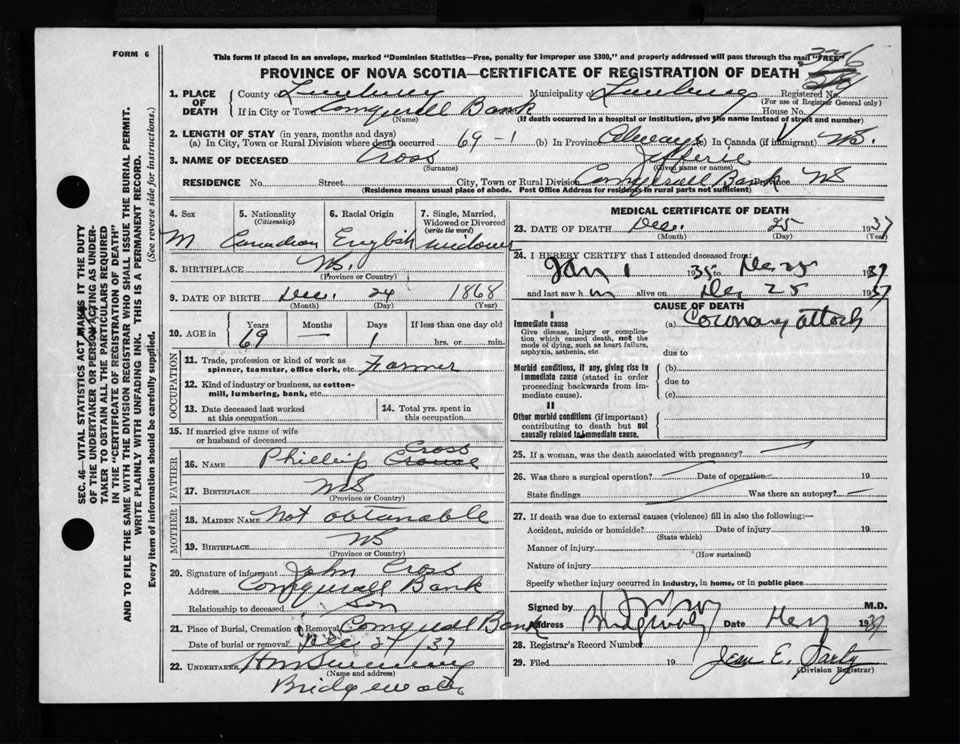 FORM 6
This form if placed in an envelope, marked "Dominion Statistics—Free, penalty for improper use $300," and properly addressed will pass through the mail "FREE"
PROVINCE OF NOVA SCOTIA—CERTIFICATE OF REGISTRATION OF DEATH
SEC. 46—VITAL STATISTICS ACT MAKES IT THE DUTY
OF THE UNDERTAKER OR PERSON ACTING AS UNDER-
TAKER TO OBTAIN ALL THE PARTICULARS REQUIRED
IN THE "CERTIFICATE OF REGISTRATION OF DEATH"
AND TO FILE THE SAME WITH THE DIVISION REGISTRAR WHO SHALL ISSUE THE BURIAL PERMIT.
WRITE PLAINLY WITH UNFADING INK. THIS IS A PERMANENT RECORD.
Every item of information should be carefully supplied. (See reverse side for instructions.)
1. PLACE OF DEATH
County of Lunenburg Municipality of Lunenburg Registered No.
(For use of Registrar General only)
If in City or Town Conquerall Bank House No.
(Name) (If death occurred in a hospital or institution, give the name instead of street and number)
2. LENGTH OF STAY (in years, months and days)
(a) In City, Town or Rural Division where death occurred 69-1 (b) In Province Always (c) In Canada (if immigrant) NS.
3. NAME OF DECEASED Cross Jefferie
(Surname) (Given name or names)
RESIDENCE No. Street City, Town or Rural Division Conquerall Bank Province NS
(Residence means usual place of abode. Post Office Address for residents in rural parts not sufficient)
4. Sex M
5. Nationality (Citizenship) Canadian
6. Racial Origin English
7. Single, Married, Widowed or Divorced (write the word) widower
8. BIRTHPLACE NS.
(Province or Country)
9. DATE OF BIRTH Dec. 24 1868
(Month) (Day) (Year)
10. AGE in Years Months Days If less than one day old
69 — 1 hrs. or min.
OCCUPATION
11. Trade, profession or kind of work as spinner, teamster, office clerk, etc. Farmer
12. Kind of industry or business, as cotton-mill, lumbering, bank, etc.
13. Date deceased last worked at this occupation
14. Total yrs. spent in this occupation
15. If married give name of wife or husband of deceased
FATHER
Cross
16. NAME Phillip Crouse
17. BIRTHPLACE NS
(Province or Country)
MOTHER
18. MAIDEN NAME Not obtanable
19. BIRTHPLACE NS
(Province or Country)
20. Signature of informant John Cross
Address Conquerall Bank
Relationship to deceased Son
21. Place of Burial, Cremation or Removal Conquerall Bank
Date of burial or removal Dec 27/37
22. UNDERTAKER
(Name and address)
Bridgewater
MEDICAL CERTIFICATE OF DEATH
23. DATE OF DEATH Dec. 25 1937
(Month) (Day) (Year)
24. I HEREBY CERTIFY that I attended deceased from:
Jan 1 1935 to Dec 25 1937
and last saw him alive on Dec 25 1937
CAUSE OF DEATH
I
Immediate cause
Give disease, injury or complication which caused death, not the mode of dying, such as heart failure, asphyxia, asthenia, etc.
(a) Coronary attack
due to
Morbid conditions, if any, giving rise to immediate cause (stated in order proceeding backwards from immediate cause).
(b)
due to
(c)
II
Other morbid conditions (if important) contributing to death but not causally related to immediate cause.
25. If a woman, was the death associated with pregnancy?
26. Was there a surgical operation? Date of operation 19
State findings Was there an autopsy?
27. If death was due to external causes (violence) fill in also the following:—
Accident, suicide or homicide? Date of injury 19
(State which)
Manner of injury
(How sustained)
Nature of injury
Specify whether injury occurred in industry, in home, or in public place
Signed by M.D.
Address Bridgewater Date 1937
28. Registrar's Record Number
29. Filed 19 Jean E.
(Division Registrar)